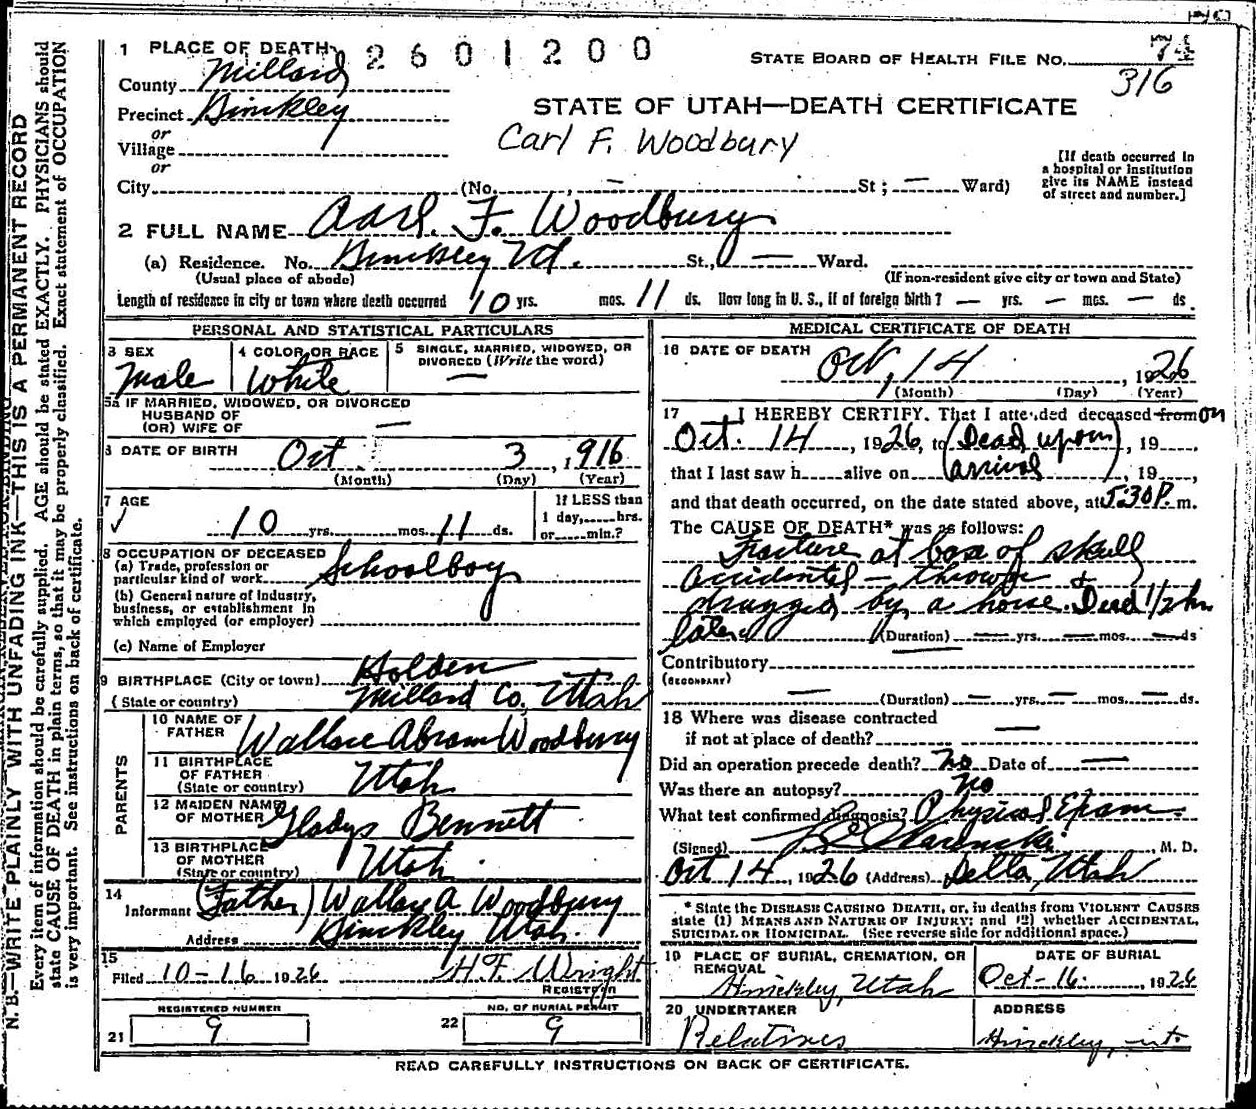 1 PLACE OF DEATH
2601200
STATE BOARD OF HEALTH FILE NO. 74
316
County Millard
Precinct Hinckley
or
Village
or
City (No. — St; — Ward)
STATE OF UTAH—DEATH CERTIFICATE
Carl F. Woodbury
[If death occurred in
a hospital or institution
give its NAME instead
of street and number.]
2 FULL NAME Carl. F. Woodbury
(a) Residence. No. Hinckley Ut. St., — Ward.
(Usual place of abode) (If non-resident give city or town and State)
Length of residence in city or town where death occurred 10 yrs. mos. 11 ds. How long in U. S., if of foreign birth? — yrs. — mos. — ds
PERSONAL AND STATISTICAL PARTICULARS
3 SEX
Male
4 COLOR OR RACE
White
5 SINGLE, MARRIED, WIDOWED, OR
DIVORCED (Write the word)
—
5a IF MARRIED, WIDOWED, OR DIVORCED
HUSBAND OF
(OR) WIFE OF —
6 DATE OF BIRTH Oct 3, 1916
(Month) (Day) (Year)
7 AGE
10 yrs. mos. 11 ds.
If LESS than
1 day, hrs.
or min.?
8 OCCUPATION OF DECEASED
(a) Trade, profession or
particular kind of work Schoolboy
(b) General nature of industry,
business, or establishment in
which employed (or employer)
(c) Name of Employer
9 BIRTHPLACE (City or town) Holden
(State or country) Millard Co, Utah
PARENTS
10 NAME OF
FATHER Wallace Abram Woodbury
11 BIRTHPLACE
OF FATHER
(State or country) Utah
12 MAIDEN NAME
OF MOTHER Gladys Bennett
13 BIRTHPLACE
OF MOTHER
(State or country) Utah.
14
Informant (Father) Wallace A Woodbury
Address Hinckley Utah.
15
Filed 10-16 1926 H.F. Wright
REGISTRAR
REGISTERED NUMBER
21 9
NO. OF BURIAL PERMIT
22 9
MEDICAL CERTIFICATE OF DEATH
16 DATE OF DEATH
Oct, 14, 1926
(Month) (Day) (Year)
17 I HEREBY CERTIFY. That I attended deceased from on
Oct. 14, 1926, to (Dead upon, 19
that I last saw h alive on arrival), 19
and that death occurred, on the date stated above, at 5:30 P. m.
The CAUSE OF DEATH* was as follows:
Fracture at base of skull
accidental — thrown &
dragged by a horse. Dead 1/2 hr
later (Duration) — yrs. — mos. — ds
Contributory
(SECONDARY)
— (Duration) — yrs. — mos. — ds.
18 Where was disease contracted
if not at place of death? —
Did an operation precede death? No Date of —
Was there an autopsy? No
What test confirmed diagnosis? Physical Exam.
(Signed) M. D.
Oct 14, 1926 (Address) Delta, Utah
* State the DISEASE CAUSING DEATH, or, in deaths from VIOLENT CAUSES
state (1) MEANS AND NATURE OF INJURY; and (2) whether ACCIDENTAL,
SUICIDAL OR HOMICIDAL. (See reverse side for additional space.)
19 PLACE OF BURIAL, CREMATION, OR
REMOVAL
Hinckley, Utah
DATE OF BURIAL
Oct-16, 1926
20 UNDERTAKER
Relatives
ADDRESS
Hinckley, ut.
READ CAREFULLY INSTRUCTIONS ON BACK OF CERTIFICATE.
N. B.—WRITE PLAINLY WITH UNFADING INK—THIS IS A PERMANENT RECORD
Every item of information should be carefully supplied. AGE should be stated EXACTLY. PHYSICIANS should
state CAUSE OF DEATH in plain terms, so that it may be properly classified. Exact statement of OCCUPATION
is very important. See instructions on back of certificate.